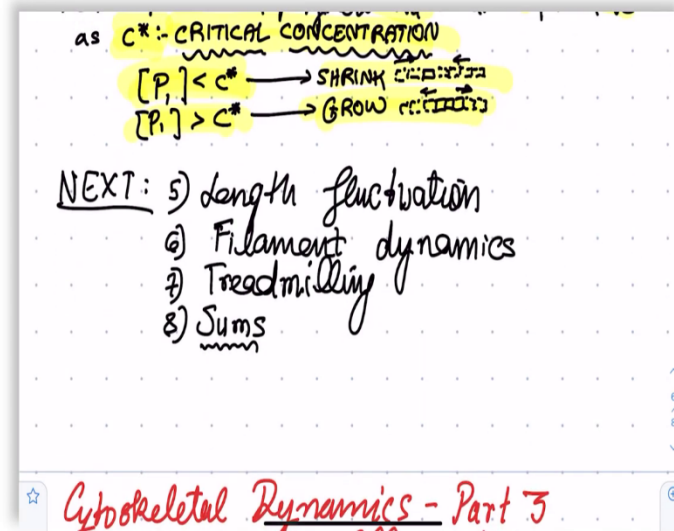 as C* :- CRITICAL CONCENTRATION
[P₁] < C* → SHRINK
[P₁] > C* → GROW
NEXT: 5) Length fluctuation
6) Filament dynamics
7) Treadmilling
8) Sums
Cytoskeletal Dynamics - Part 3